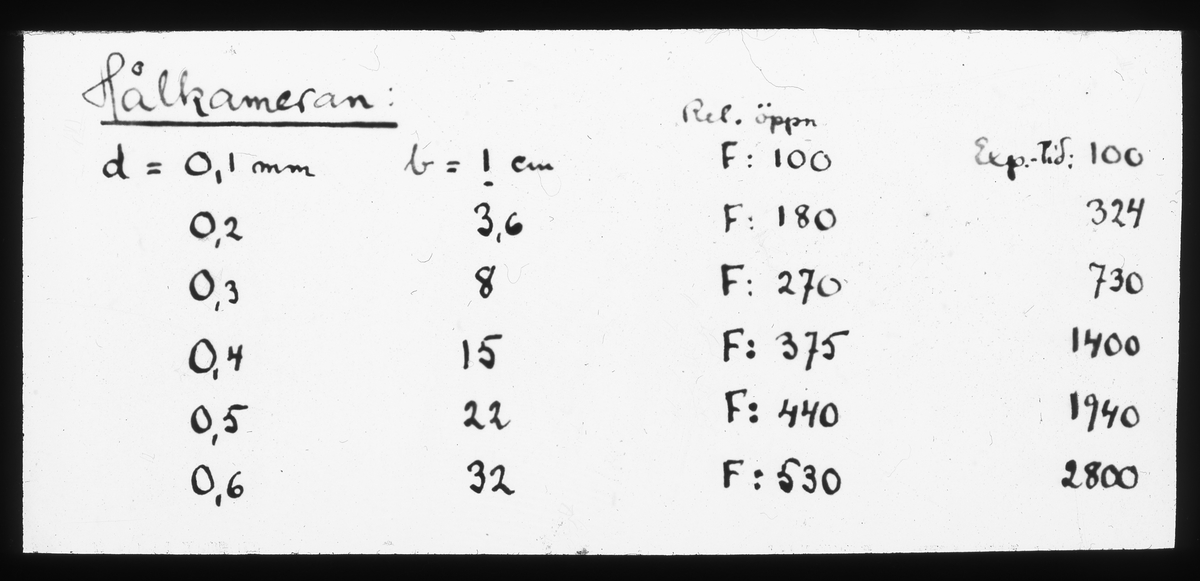 Hålkameran:
Rel. öppn
d = 0,1 mm b = 1 cm F: 100 Exp.-tid: 100
0,2 3,6 F: 180 324
0,3 8 F: 270 730
0,4 15 F: 375 1400
0,5 22 F: 440 1940
0,6 32 F: 530 2800